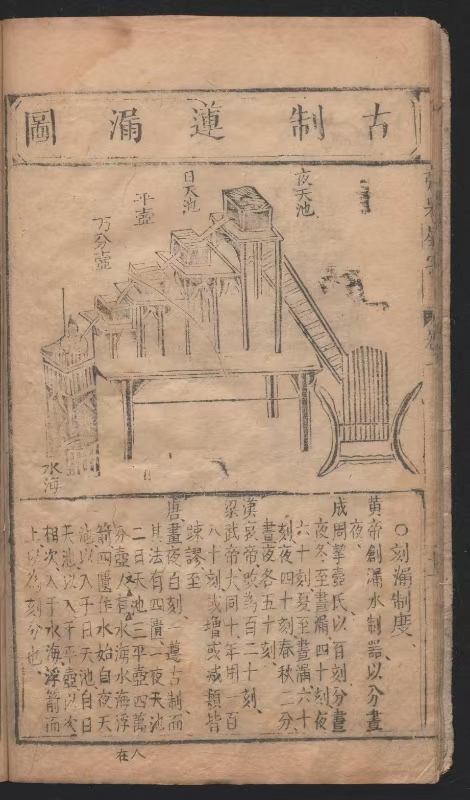 古制蓮漏圖
夜天池
日天池
平壺
万分壺
水海
○刻漏制度、
黄帝創漏水制器以分晝
夜、
成周挈壺氏以百刻分晝
夜冬至晝漏四十刻夜
六十刻夏至晝漏六十
刻夜四十刻春秋二分
晝夜各五十刻、
漢哀帝改為百二十刻、
梁武帝大同十年用一百
八十刻或增或减類皆
踈謬至
唐晝夜百刻一遵古制而
其法有四匱一夜天池
二日天池三平壺四萬
分壺又有水海水海浮
箭四匱作水始自夜天
池以入于日天池自日
天池以入于平壺以次
相次入于水海浮箭而
上以為刻分也、
人在